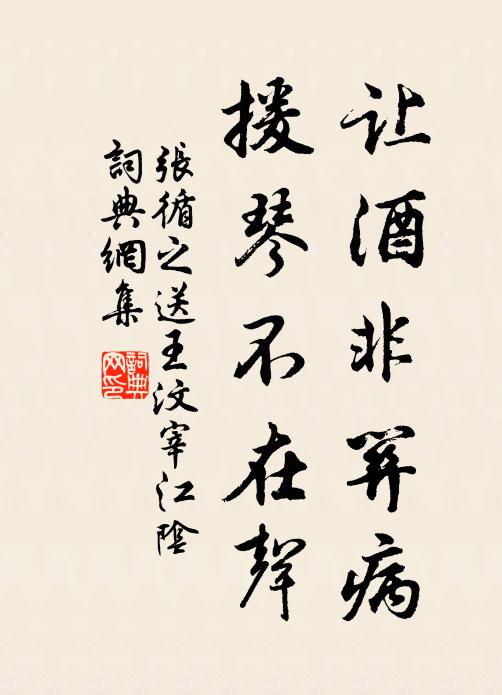 让酒非关病
援琴不在聲
張循之送王汶宰江陰
詞典網集
詞典
网印